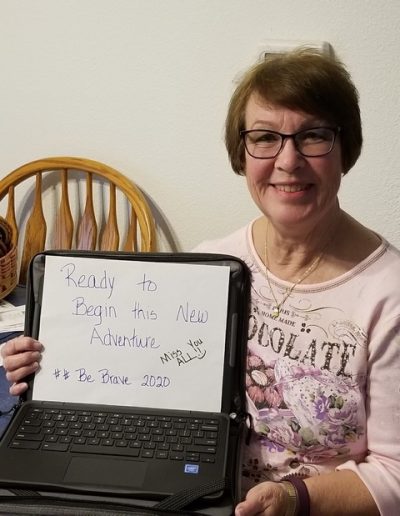 Ready to
Begin this New
Adventure
Miss You
ALL!
## Be Brave 2020
HOME MADE
CHOCOLATE